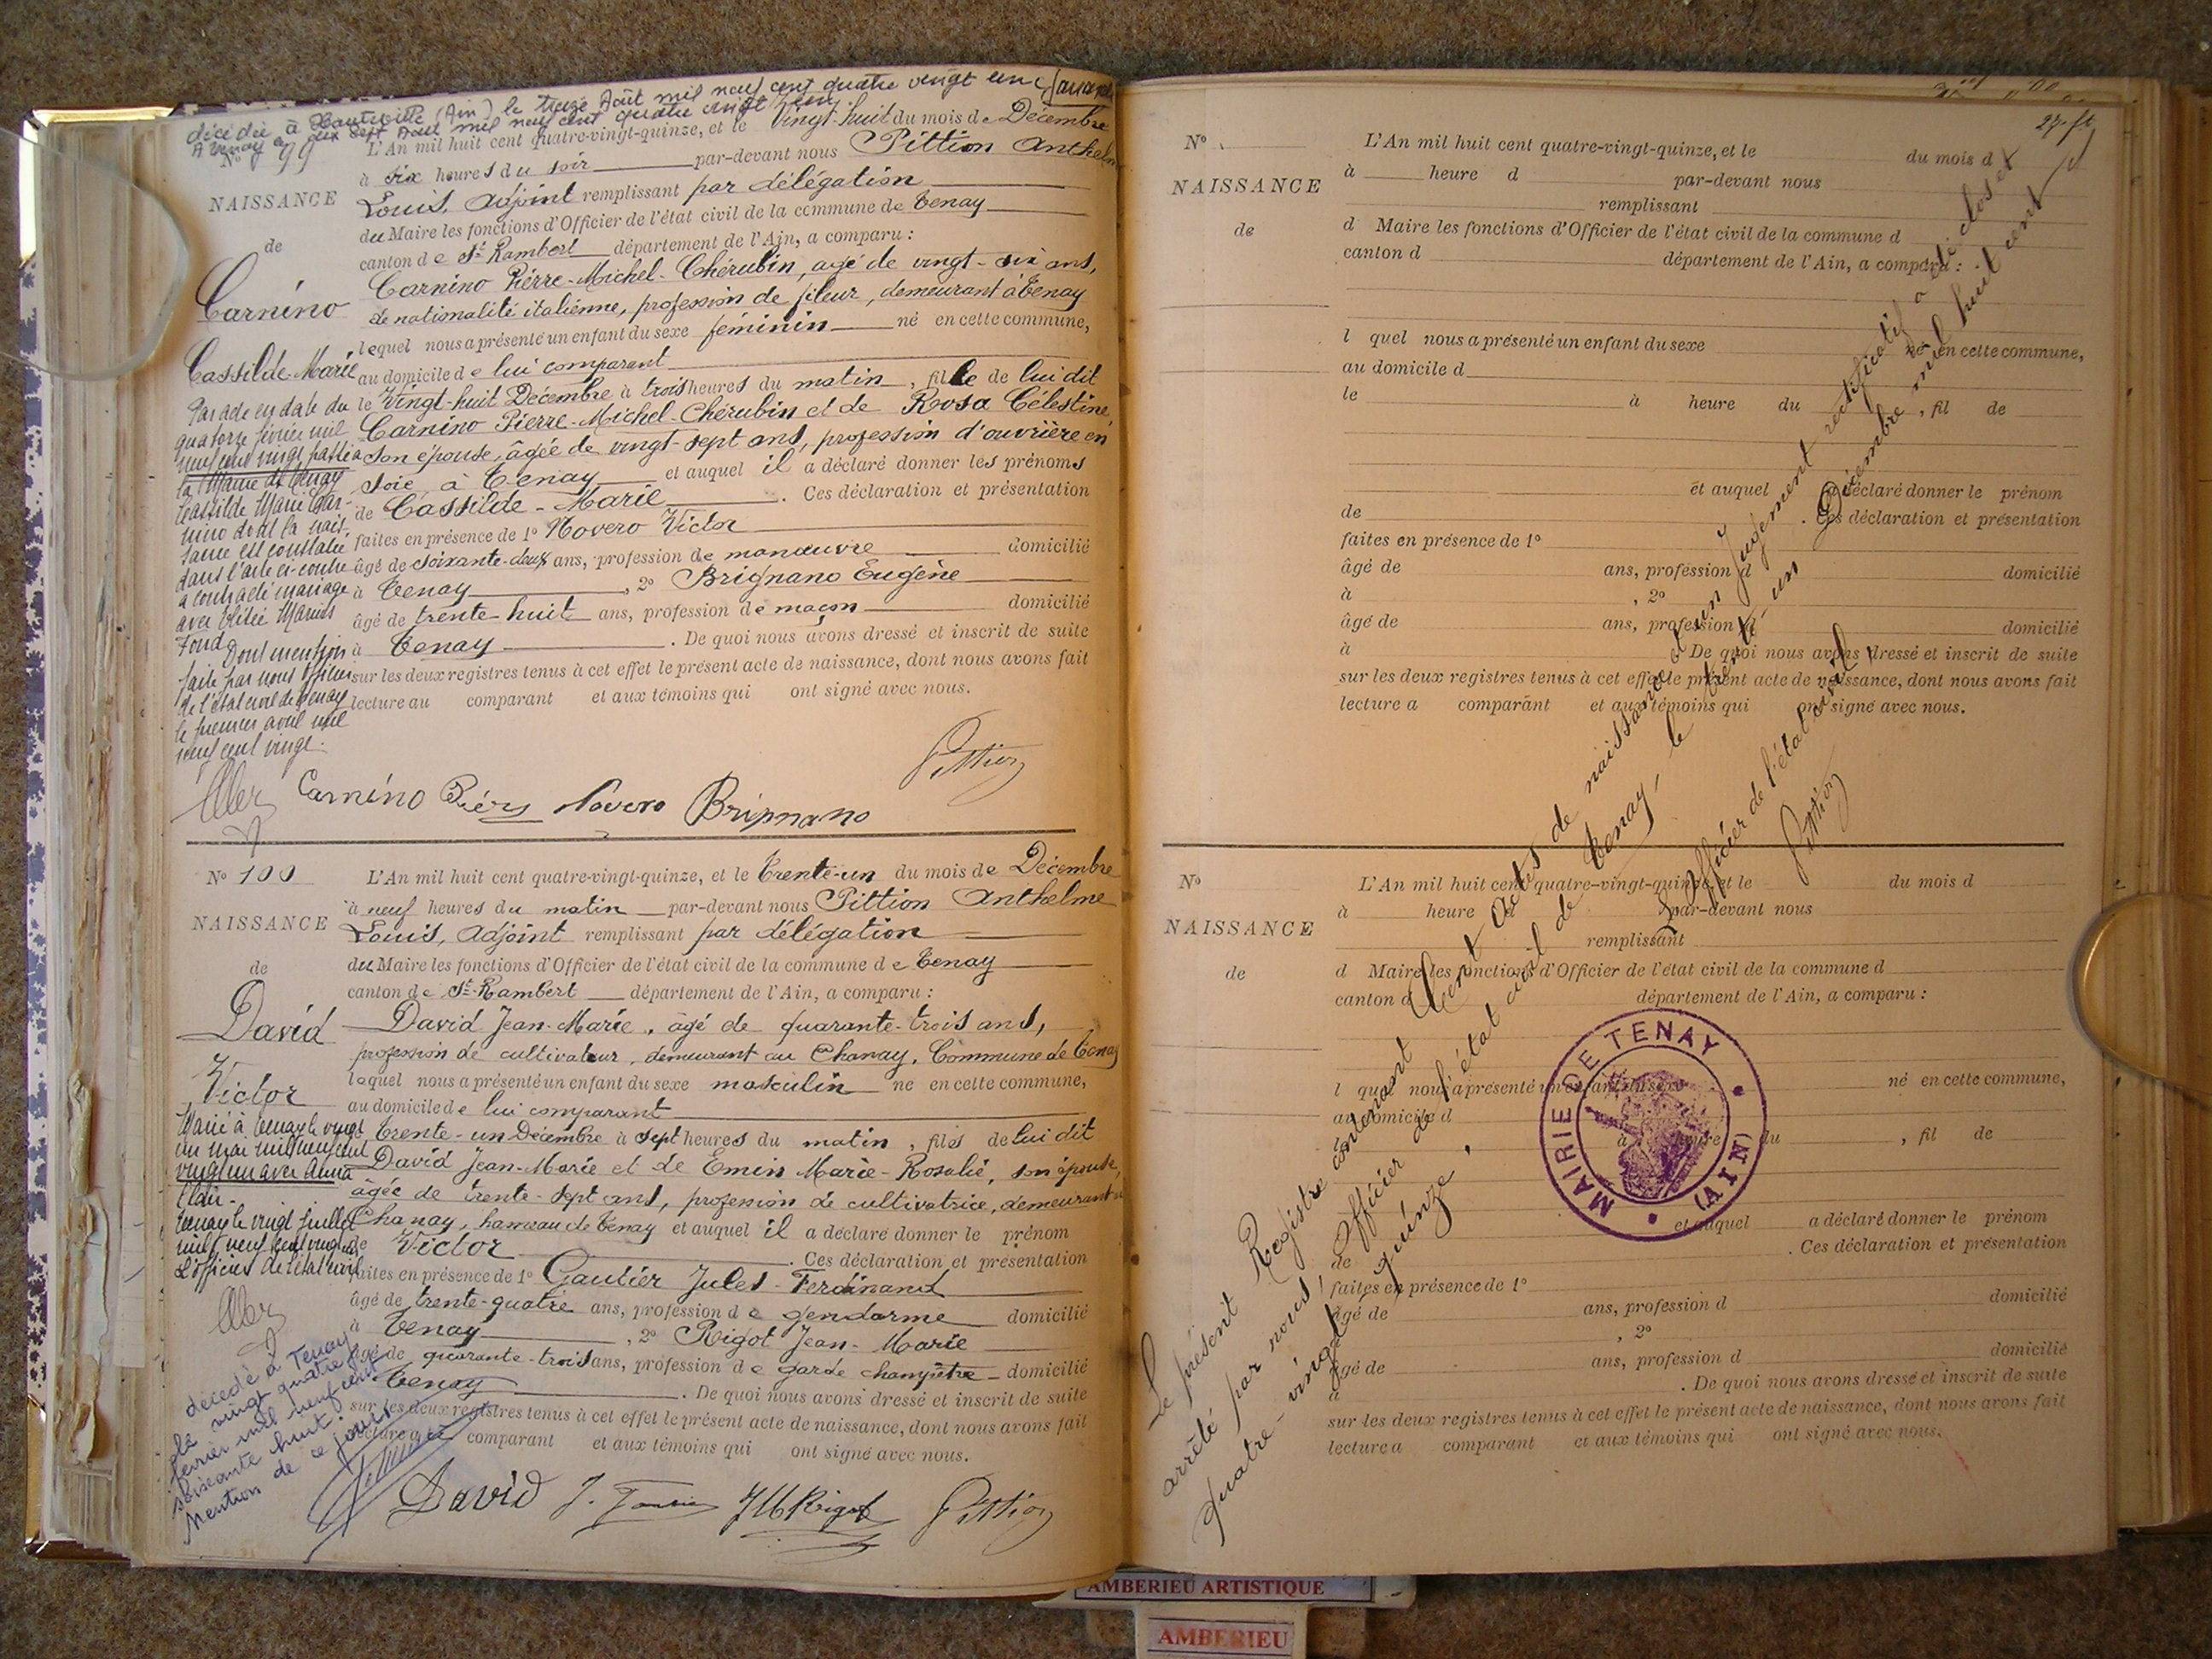 décédée à Hauteville (Ain) le treize Août mil neuf cent quatre vingt un
A Tenay le dix sept Août mil neuf cent quatre vingt un
N° 99
NAISSANCE
de
Carnino
Cassilde-Marie
Par acte en date du
quatorze février mil
neuf cent vingt passé à
la Mairie de Tenay
Cassilde Marie Car-
nino dont la nais
sance est constatée
dans l'acte ci-contre
a contracté mariage
avec Elisée Marius
Fond
Dont mention
faite par nous officier
de l'état civil de Tenay
le premier avril mil
neuf cent vingt.
L'An mil huit cent quatre-vingt-quinze, et le Vingt-huit du mois de Décembre
à six heures du soir par-devant nous Pittion Anthelme
Louis, Adjoint remplissant par délégation
du Maire les fonctions d'Officier de l'état civil de la commune de Tenay
canton de St-Rambert département de l'Ain, a comparu :
Carnino Pierre-Michel-Chérubin, agé de vingt-six ans,
de nationalité italienne, profession de fileur, demeurant à Tenay
lequel nous a présenté un enfant du sexe féminin né en cette commune,
au domicile de lui comparant
le Vingt-huit Décembre à trois heures du matin, fille de lui dit
Carnino Pierre-Michel-Chérubin et de Rosa Célestine
son epouse, âgée de vingt-sept ans, profession d'ouvrière en
soie, à Tenay et auquel il a déclaré donner les prénoms
de Cassilde-Marie. Ces déclaration et présentation
faites en présence de 1° Novero Victor
âgé de soixante-deux ans, profession de manœuvre domicilié
à Tenay, 2° Brignano Eugène
âgé de trente huit ans, profession de maçon domicilié
à Tenay. De quoi nous avons dressé et inscrit de suite
sur les deux registres tenus à cet effet le présent acte de naissance, dont nous avons fait
lecture au comparant et aux témoins qui ont signé avec nous.
Pittion
Carnino Novero Brignano
N° 100
NAISSANCE
de
David
Victor
Marié à Tenay le vingt
un mai mil neuf cent
vingt un avec Anna
Tenay le vingt juillet
mil neuf cent vingt
L'officier de l'état civil
décédé à Tenay
le vingt quatre
février mil neuf cent
soixante huit.
Mention de ce jour
L'An mil huit cent quatre-vingt-quinze, et le Trente-un du mois de Décembre
à neuf heures du matin par-devant nous Pittion Anthelme
Louis, Adjoint remplissant par délégation
du Maire les fonctions d'Officier de l'état civil de la commune de Tenay
canton de St-Rambert département de l'Ain, a comparu :
David Jean-Marie, âgé de quarante-trois ans,
profession de cultivateur, demeurant au Chanay, Commune de Tenay
lequel nous a présenté un enfant du sexe masculin né en cette commune,
au domicile de lui comparant
Trente-un Décembre à sept heures du matin, fils de lui dit
David Jean-Marie et de Emin Marie-Rosalie, son épouse,
âgée de trente-sept ans, profession de cultivatrice, demeurant à
Chanay, hameau de Tenay et auquel il a déclaré donner le prénom
de Victor. Ces déclaration et présentation
faites en présence de 1° Gautier Jules-Ferdinand
âgé de trente-quatre ans, profession de gendarme domicilié
à Tenay, 2° Rigot Jean-Marie
âgé de quarante-trois ans, profession de garde champêtre domicilié
Tenay. De quoi nous avons dressé et inscrit de suite
sur les deux registres tenus à cet effet le présent acte de naissance, dont nous avons fait
lecture au comparant et aux témoins qui ont signé avec nous.
David JM Rigot Pittion
27. ft
N°
NAISSANCE
de
L'An mil huit cent quatre-vingt-quinze, et le du mois d
à heure d par-devant nous
remplissant
d Maire les fonctions d'Officier de l'état civil de la commune d
canton d département de l'Ain, a comparu :
l quel nous a présenté un enfant du sexe né en cette commune,
au domicile d
le à heure du , fil de
et auquel a déclaré donner le prénom
de . Ces déclaration et présentation
faites en présence de 1°
âgé de ans, profession d domicilié
à , 2°
âgé de ans, profession d domicilié
à . De quoi nous avons dressé et inscrit de suite
sur les deux registres tenus à cet effet le présent acte de naissance, dont nous avons fait
lecture a comparant et aux témoins qui ont signé avec nous.
N°
NAISSANCE
de
L'An mil huit cent quatre-vingt-quinze, et le du mois d
à heure d par-devant nous
remplissant
d Maire les fonctions d'Officier de l'état civil de la commune d
canton d département de l'Ain, a comparu :
l quel nous a présenté un enfant du sexe né en cette commune,
au domicile d
à heure du , fil de
et auquel a déclaré donner le prénom
de . Ces déclaration et présentation
faites en présence de 1°
âgé de ans, profession d domicilié
, 2°
âgé de ans, profession d domicilié
à . De quoi nous avons dressé et inscrit de suite
sur les deux registres tenus à cet effet le présent acte de naissance, dont nous avons fait
lecture a comparant et aux témoins qui ont signé avec nous.
Le présent Registre contenant Cent Actes de naissance & un Jugement rectificatif a été clos et
arrêté par nous, Officier de l'état civil de Tenay, le trente-un Décembre mil huit cent
quatre-vingt-quinze,
L'Officier de l'état civil,
Pittion
MAIRIE DE TENAY
(AIN)
AMBERIEU ARTISTIQUE
AMBERIEU